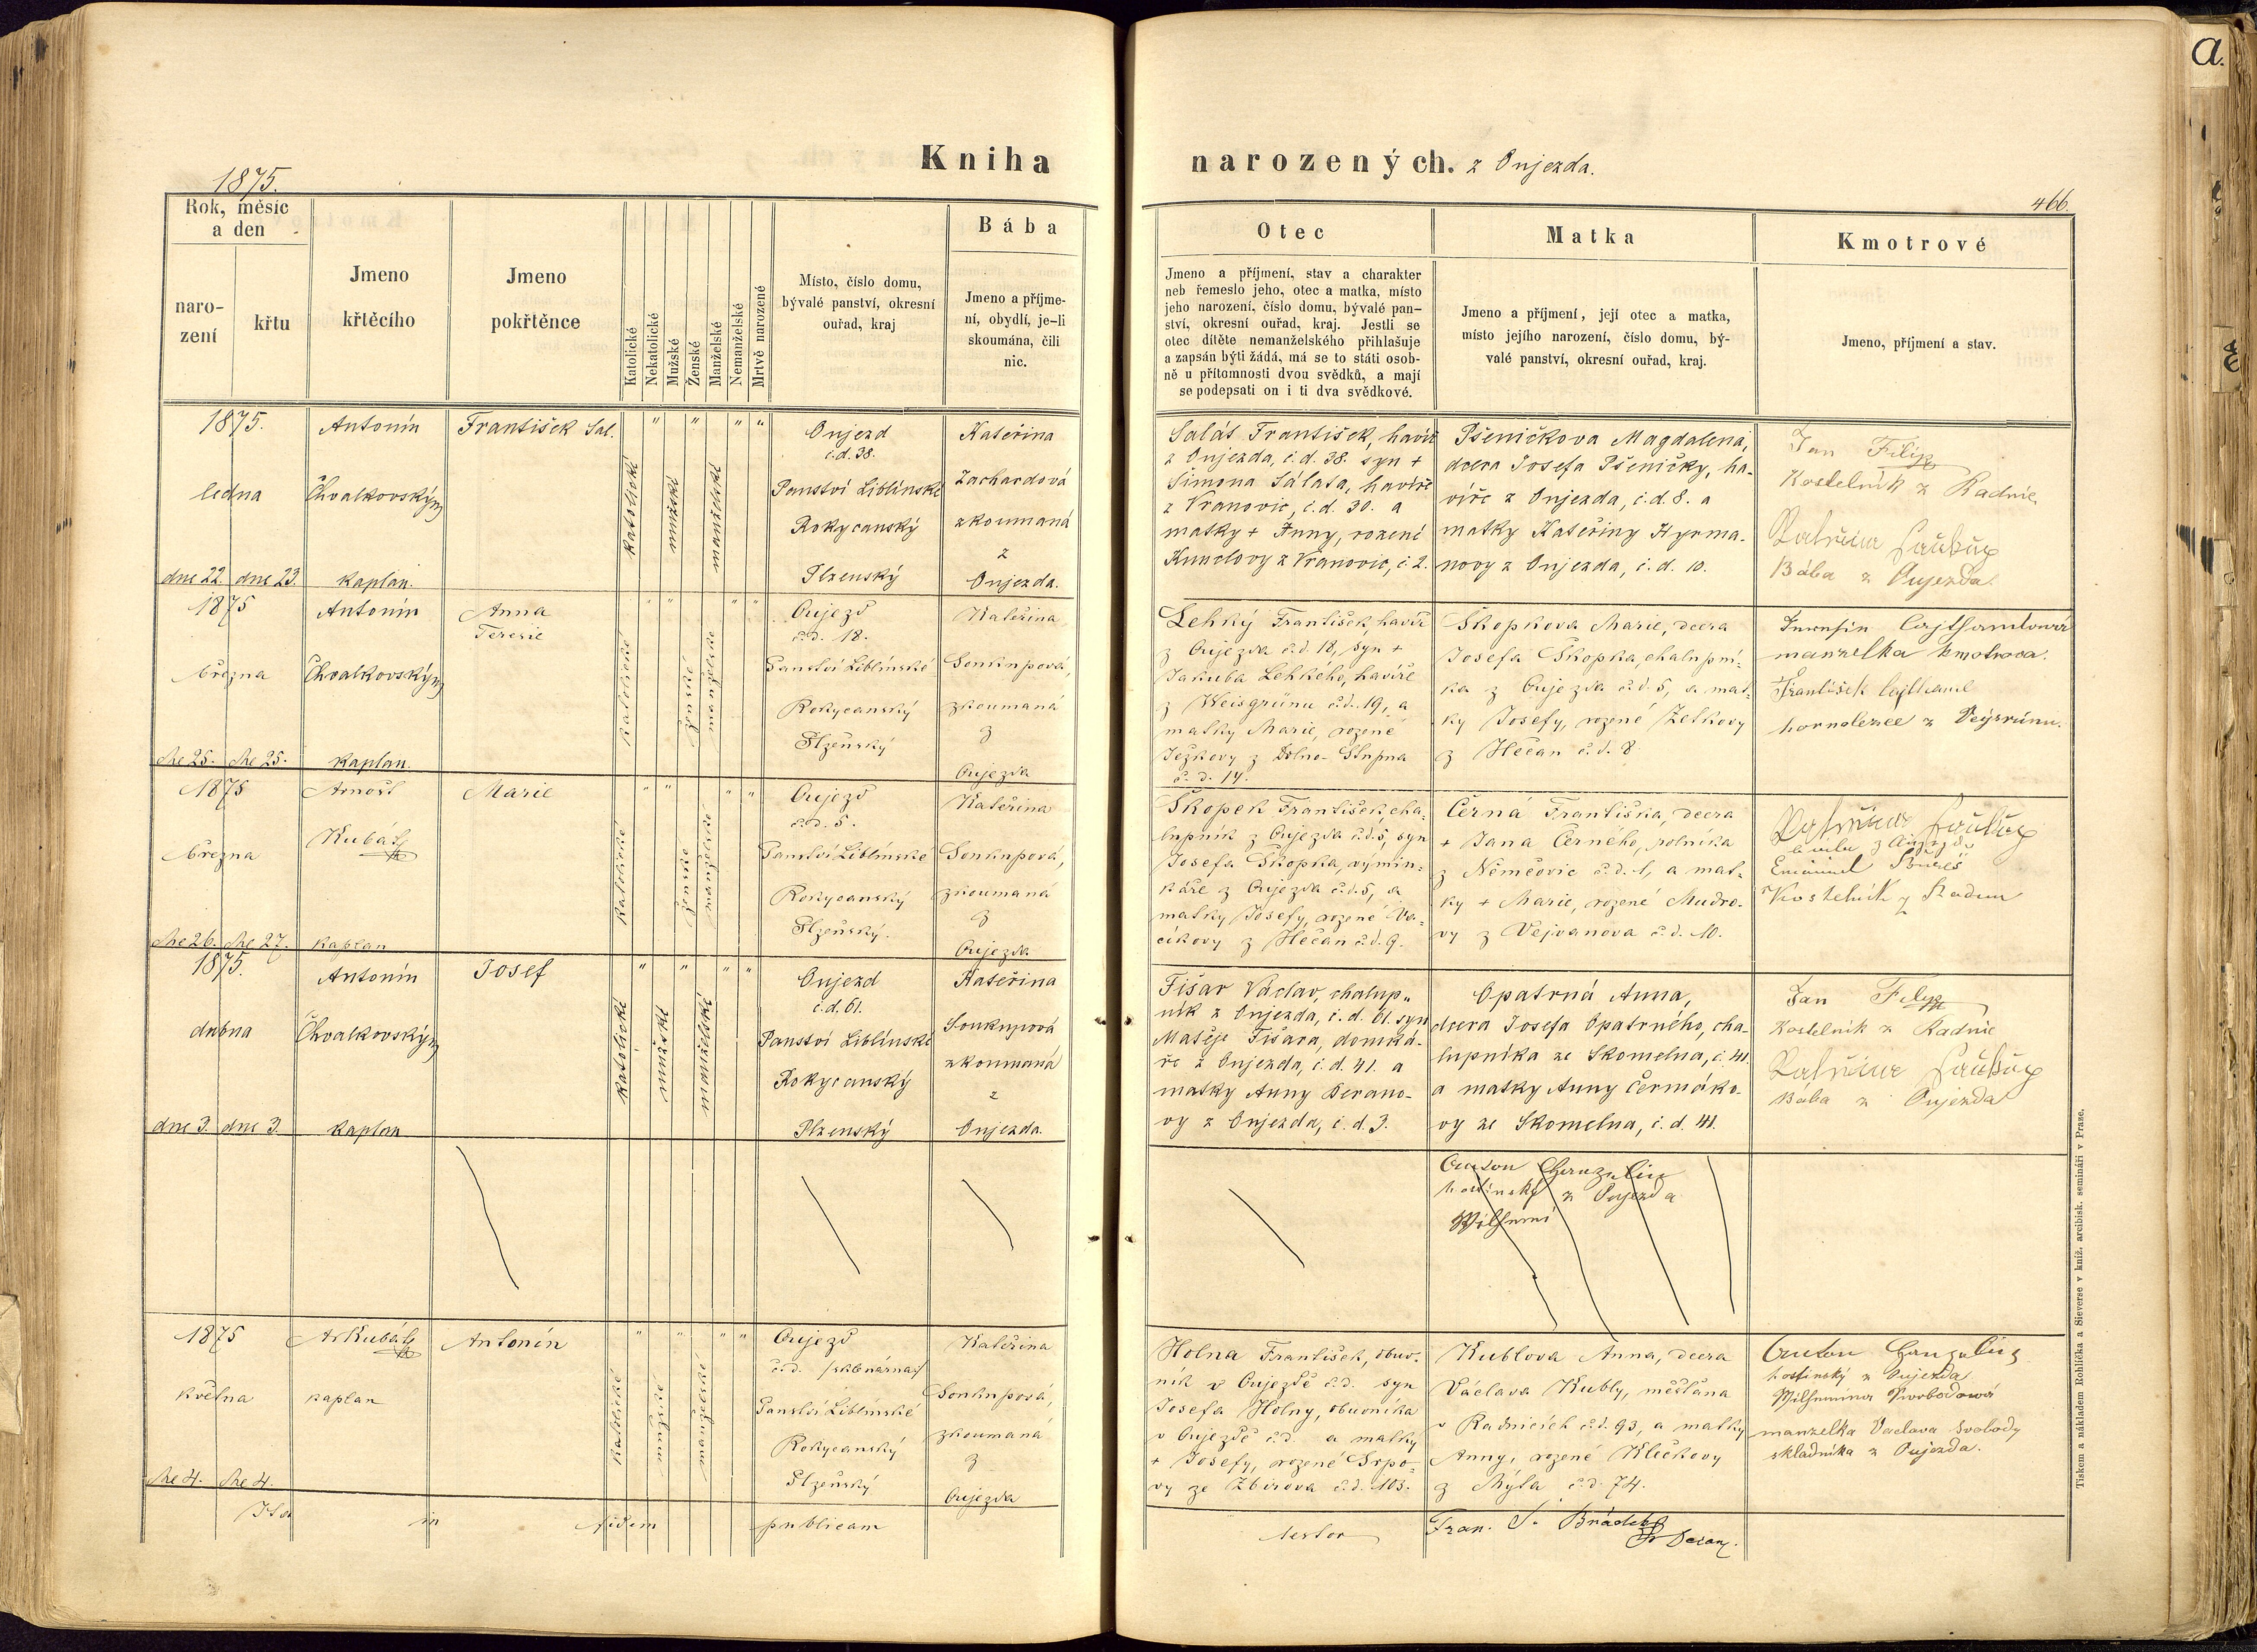 Kniha narozených. z Oujezda.
1875.
466.
a.
Rok, měsíc
a den
naro-
zení
křtu
Jmeno
křtěcího
Jmeno
pokřtěnce
Katolické
Nekatolické
Mužské
Ženské
Manželské
Nemanželské
Mrtvě narozené
Místo, číslo domu,
bývalé panství, okresní
ouřad, kraj
Bába
Jmeno a příjme-
ní, obydlí, je-li
skoumána, čili
nic.
Otec
Jmeno a příjmení, stav a charakter
neb řemeslo jeho, otec a matka, místo
jeho narození, číslo domu, bývalé pan-
ství, okresní ouřad, kraj. Jestli se
otec dítěte nemanželského přihlašuje
a zapsán býti žádá, má se to státi osob-
ně u přítomnosti dvou svědků, a mají
se podepsati on i ti dva svědkové.
Matka
Jmeno a příjmení, její otec a matka,
místo jejího narození, číslo domu, bý-
valé panství, okresní ouřad, kraj.
Kmotrové
Jmeno, příjmení a stav.
1875.
ledna
dne 22. dne 23.
Antonín
Chvalkovský
kaplan.
František Sal.
katolické
mužské
manželské
Oujezd
č.d. 38.
Panství Liblínské
Rokycanský
Plzenský
Kateřina
Zachardová
zkoumaná
z
Oujezda.
Salát František, havíř
z Oujezda, č.d. 38. syn +
Šimona Sálata, havíře
z Vranovic, č.d. 30. a
matky + Anny, rozené
Kunclovy z Vranovic, č. 2.
Pšeničkova Magdalena,
dcera Josefa Pšeničky, ha-
víře z Oujezda, č.d. 8. a
matky Kateřiny Hyrma-
novy z Oujezda, č. d. 10.
Jan Filip
Kostelník z Radnic
Bába z Oujezda.
1875
března
dne 25. dne 25.
Antonín
Chvalkovský
kaplan.
Anna
Teresie
katolické
ženské
manželské
Oujezd
č.d. 18.
Panství Liblínské
Rokycanský
Plzeňský
Kateřina
Soukupová,
zkoumaná
z
Oujezda
Lehký František, havíř
z Oujezda č.d. 18, syn +
Jakuba Lehkého, havíře
z Weisgrünu č.d. 19, a
matky Marie, rozené
Ježkovy z Dolno-Stupna
č. d. 14.
Škopkova Marie, dcera
Josefa Škopka, chalupní-
ka z Oujezda č.d. 5, a mat-
ky Josefy, rozené
z Hlečan č. d. 8.
manzelka kmotrova.
František
z
1875
března
dne 26. dne 27.
Arnošt
Kubát
kaplan
Marie
katolické
ženské
manželské
Oujezd
č.d. 5.
Panství Liblínské
Rokycanský
Plzeňský.
Kateřina
Soukupová,
zkoumaná
z
Oujezda
Škopek František, cha-
lupník z Oujezda č.d. 5, syn
Josefa Škopka, výmin-
káře z Oujezda č.d. 5, a
matky Josefy, rozené Va-
cíkovy z Hlečan č.d. 9.
Černá Františka, dcera
+ Jana Černého, rolníka
z Němčovic č.d. 1, a mat-
ky + Marie, rozené Mudro-
vy z Vejvanova č. d. 10.
Kostelník z Radnic
1875.
dubna
dne 3. dne 3.
Antonín
Chvalkovský
kaplan
Josef
katolické
mužské
manželské
Oujezd
č.d. 61.
Panství Liblínské
Rokycanský
Plzenský
Kateřina
Soukupová
zkoumaná
z
Oujezda.
Fišar Václav, chalup-
ník z Oujezda, č. d. 61. syn
Matěje Fišara, domká-
ře z Oujezda, č.d. 41. a
matky Anny Berano-
vy z Oujezda, č. d. 3.
Opatrná Anna,
dcera Josefa Opatrného, cha-
lupníka ze Skomelna, č. 41.
a matky Anny Čermáko-
vy ze Skomelna, č. d. 41.
Jan Filip
Kostelník z Radnic
Bába z Oujezda
hostinský z Oujezda
1875
května
dne 4. dne 4.
Ar Kubát
kaplan
Antonín
katolické
mužské
manželské
Oujezd
č.d. /sklenárna/
Panství Liblínské
Rokycanský
Plzeňský
Kateřina
Soukupová,
zkoumaná
z
Oujezda
Holna František, obuv-
ník v Oujezdě č.d. syn
Josefa Holny, obuvníka
v Oujezdě č.d. a matky
+ Josefy, rozené Srpo-
vy ze Zbirova č.d. 103.
Kublova Anna, dcera
Václava Kubly, měšťana
v Radnicích č.d. 93, a matky
Anny, rozené Kličkovy
z Mýta č.d. 74.
hostinský z Oujezda
Svobodová
manzelka Vaclava Svobody
skladnika z Oujezda.
Ita in fidem publicam
testor Fran. S.
Tiskem a nákladem Rohlíčka a Sieverse v kníž. arcibisk. semináři v Praze.